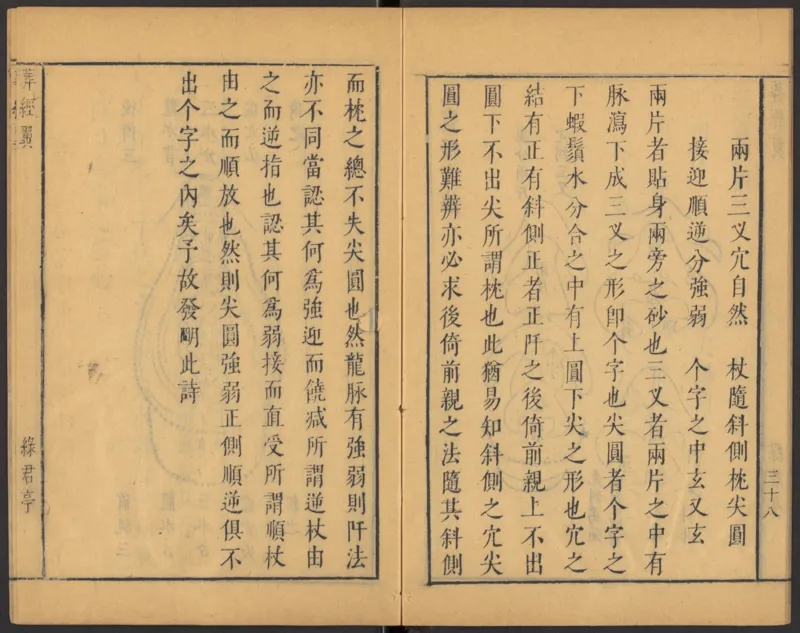 三十八
兩片三叉穴自然　杖隨斜側枕尖圓
接迎順逆分強弱　个字之中玄又玄
兩片者貼身兩旁之砂也三叉者兩片之中有
脉瀉下成三叉之形卽个字也尖圓者个字之
下蝦鬚水分合之中有上圓下尖之形也穴之
結有正有斜側正者正阡之後倚前親上不出
圓下不出尖所謂枕也此猶易知斜側之穴尖
圓之形難辨亦必求後倚前親之法隨其斜側
而枕之總不失尖圓也然龍脉有強弱則阡法
亦不同當認其何爲強迎而饒减所謂逆杖由
之而逆指也認其何爲弱接而直受所謂順杖
由之而順放也然則尖圓強弱正側順逆俱不
出个字之內矣予故發朙此詩
葬經翼
綠君亭